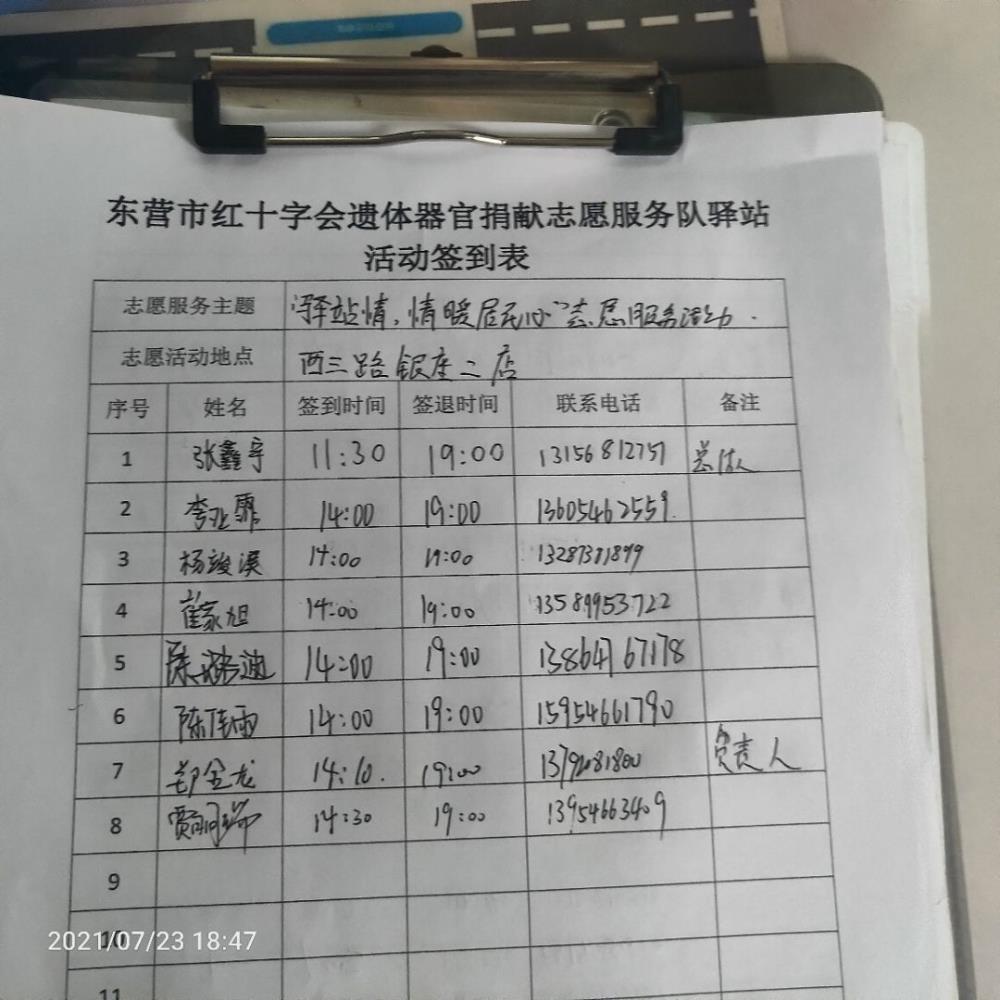 东营市红十字会遗体器官捐献志愿服务队驿站
活动签到表
志愿服务主题 驿站情,情暖居民心"志愿服务活动.
志愿活动地点 西三路银座二店
序号 姓名 签到时间 签退时间 联系电话 备注
1 张鑫宇 11:30 19:00 13156812751
2 李 霏 14:00 19:00 13605462559.
3 杨竣淏 14:00 19:00
4 崔家旭 14:00 19:00 13589953722
5 陈 迪 14:00 19:00 13864767178
6 陈佳雨 14:00 19:00 15954661790
7 郑金龙 14:10. 19:00 负责人
8 贾 14:30 19:00 13954663409
9
10
11
2021/07/23 18:47